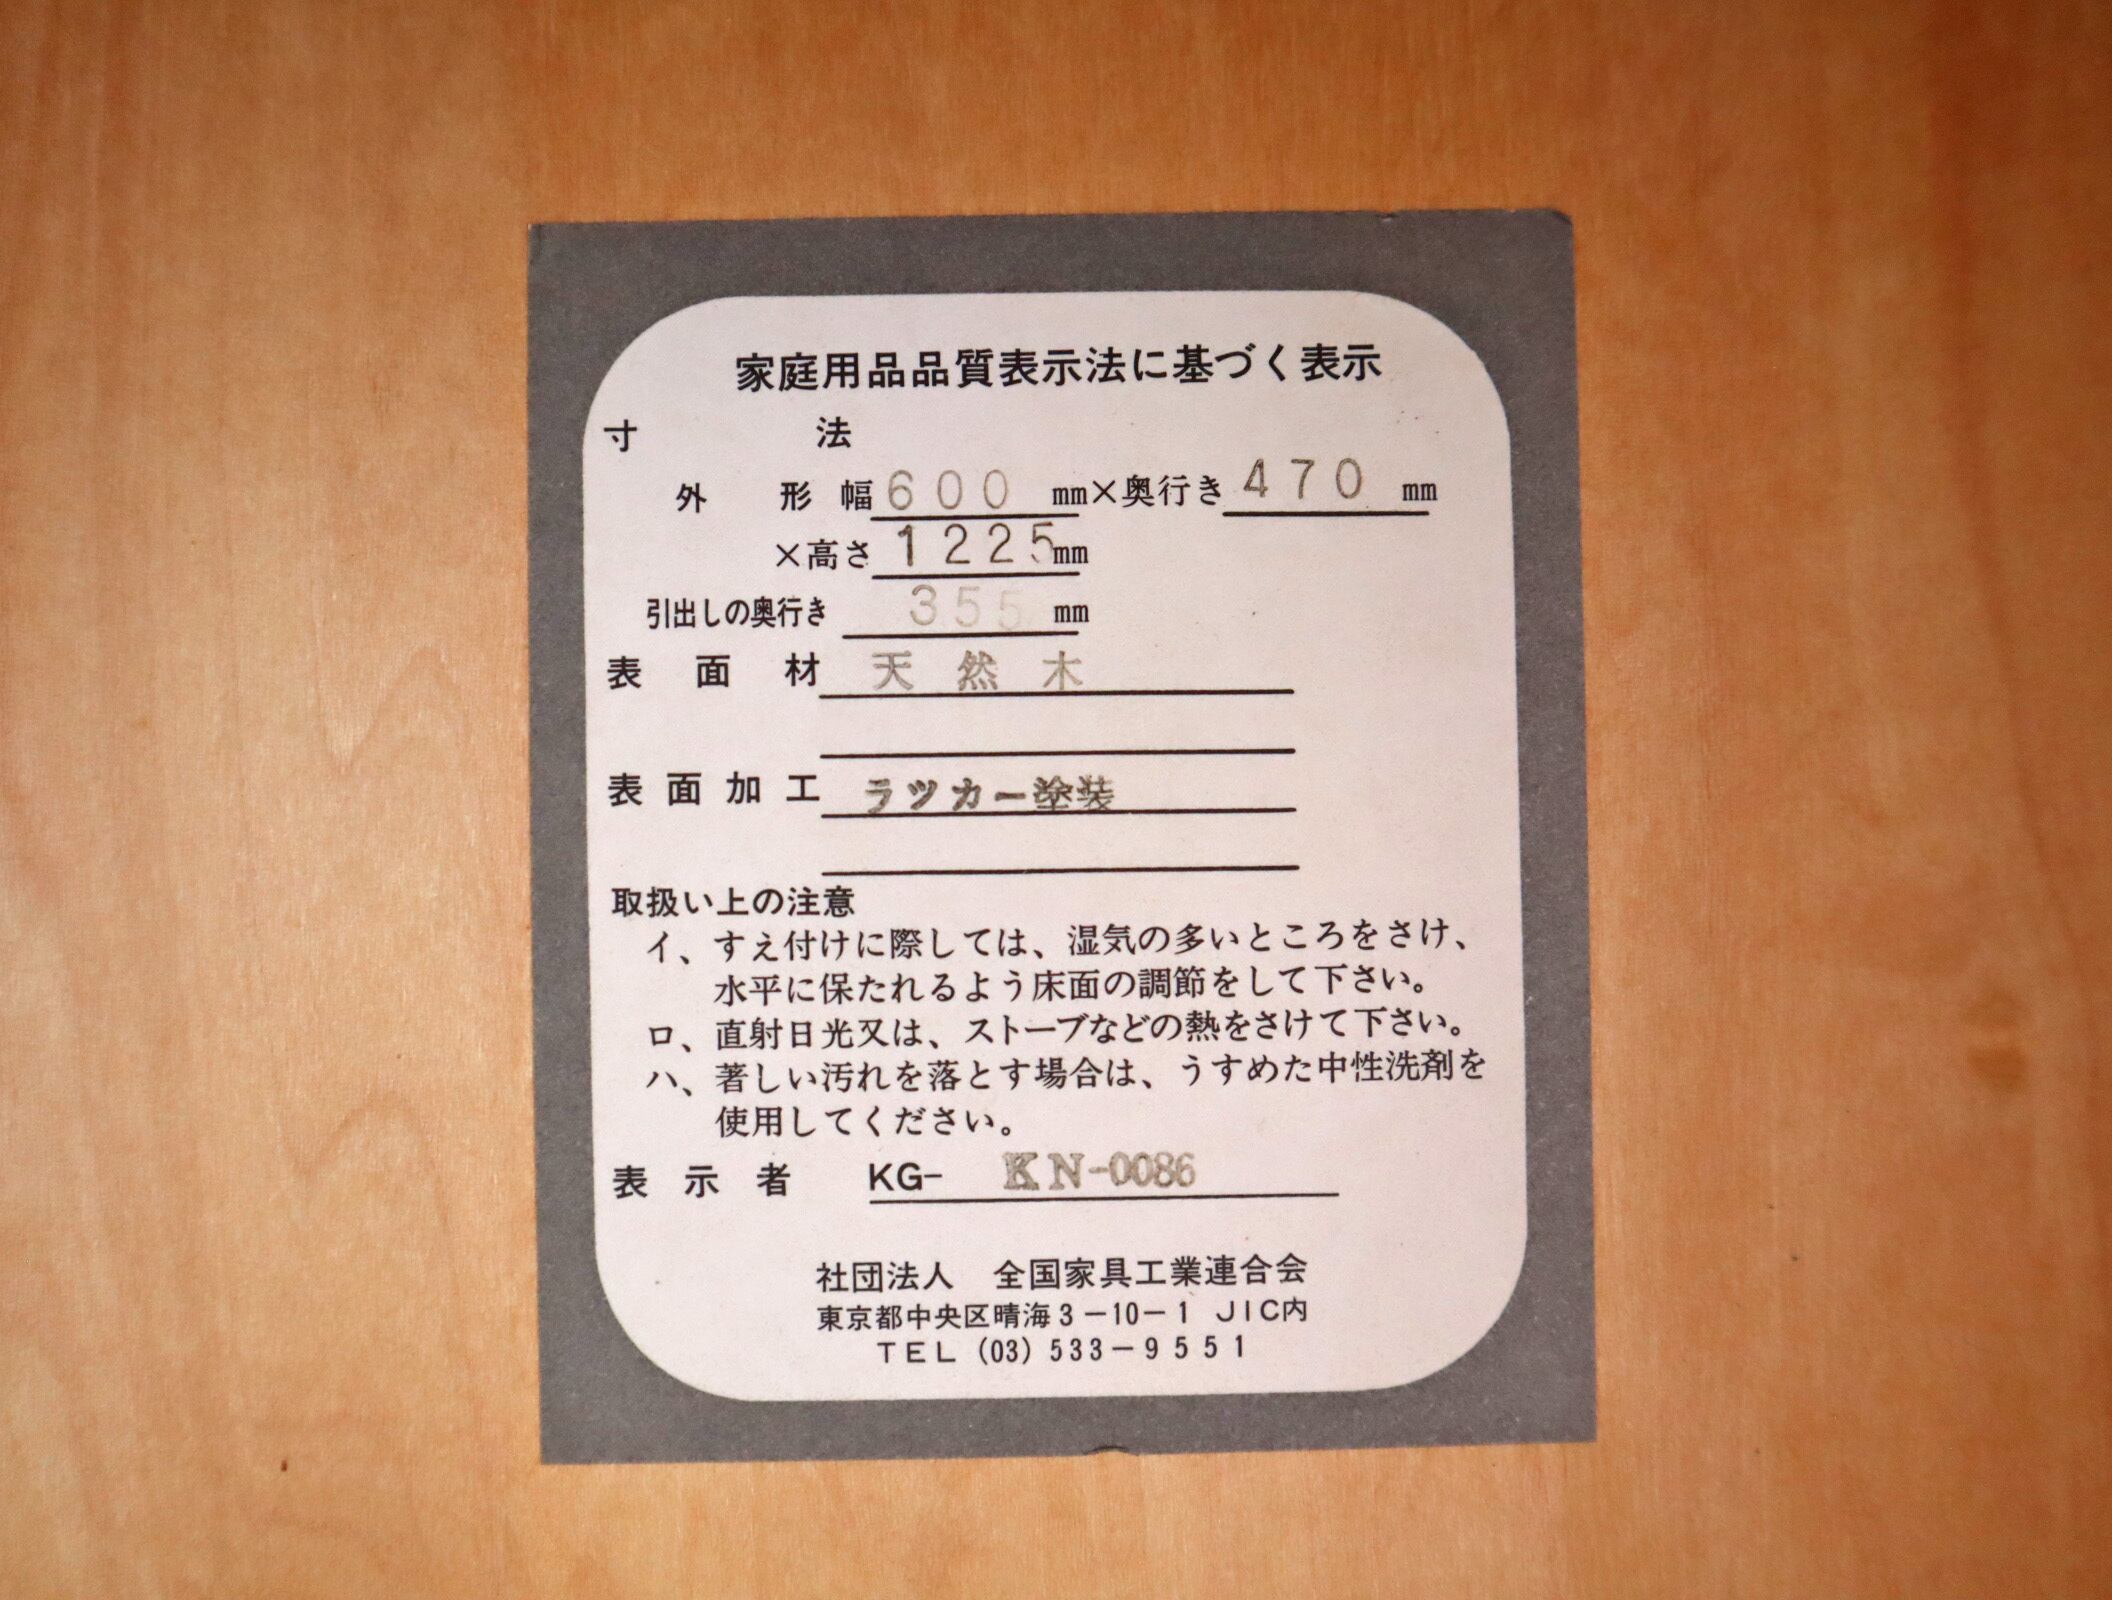 家庭用品品質表示法に基づく表示
寸法
外形 幅 600 mm×奥行き 470 mm
×高さ 1225mm
引出しの奥行き 355 mm
表面材 天然木
表面加工 ラツカー塗装
取扱い上の注意
イ、すえ付けに際しては、湿気の多いところをさけ、
水平に保たれるよう床面の調節をして下さい。
ロ、直射日光又は、ストーブなどの熱をさけて下さい。
ハ、著しい汚れを落とす場合は、うすめた中性洗剤を
使用してください。
表示者 KG- KN-0086
社団法人 全国家具工業連合会
東京都中央区晴海3-10-1 JIC内
TEL (03) 533-9551